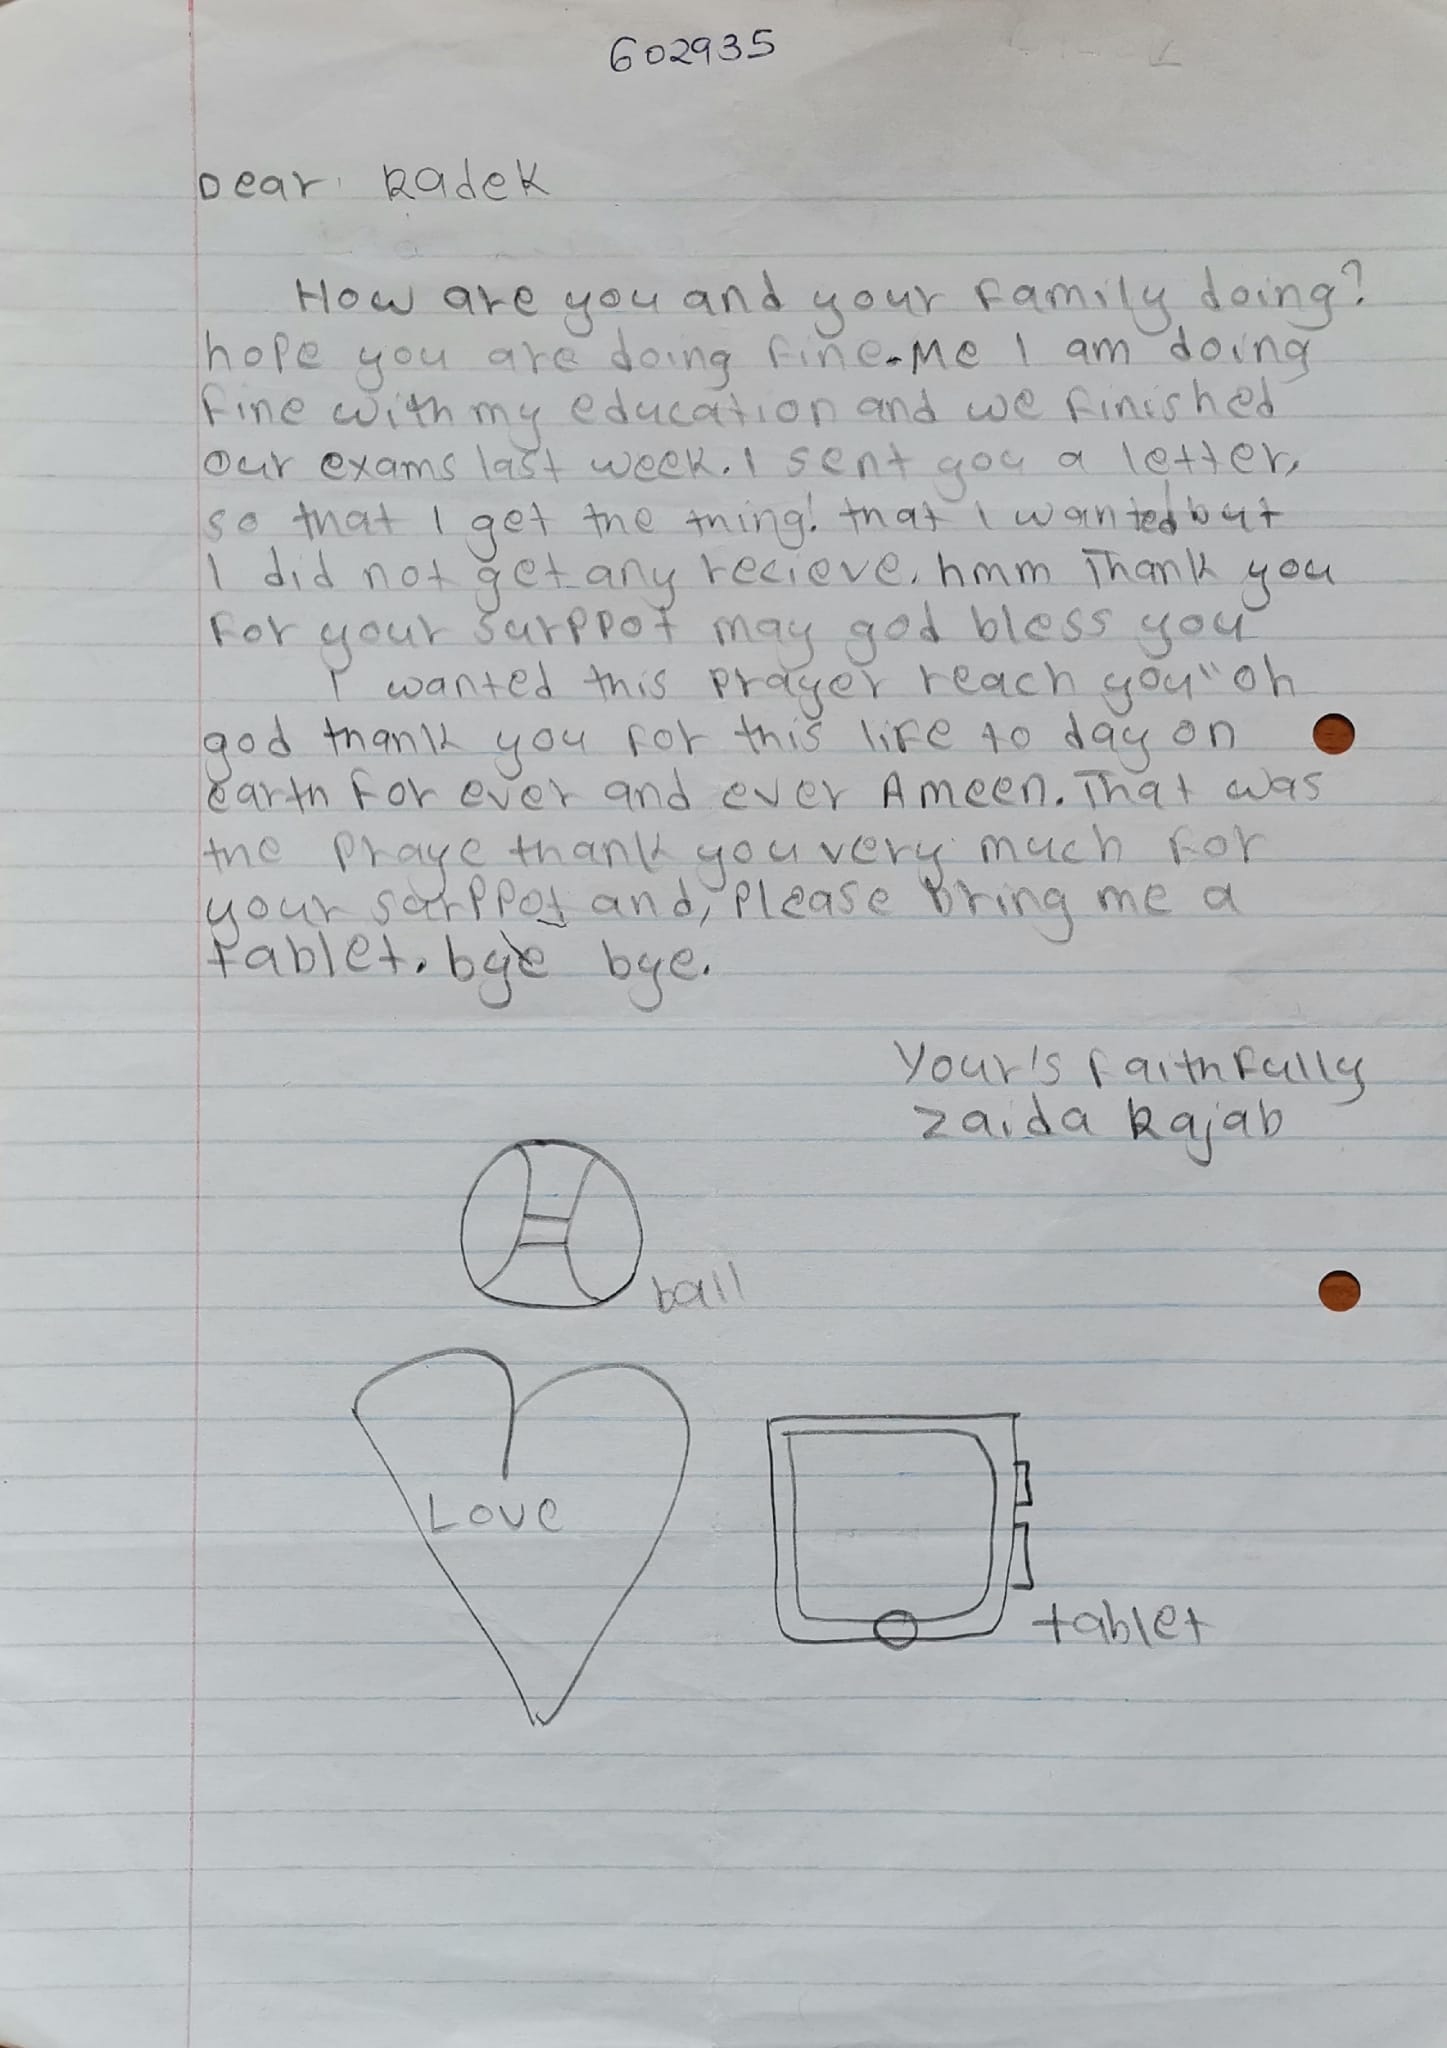 602935
Dear Radek
How are you and your family doing?
hope you are doing fine. Me I am doing
fine with my education and we finished
our exams last week. I sent you a letter,
so that I get the thing! that I wanted but
I did not get any recieve. hmm Thank you
For your surppot may god bless you
I wanted this prayer reach you "oh
god thank you for this life to day on
earth for ever and ever Ameen. That was
the praye thank you very much for
your surppot and, Please bring me a
tablet. bye bye.
Your's faithfully
Zaida Rajab
ball
Love
tablet